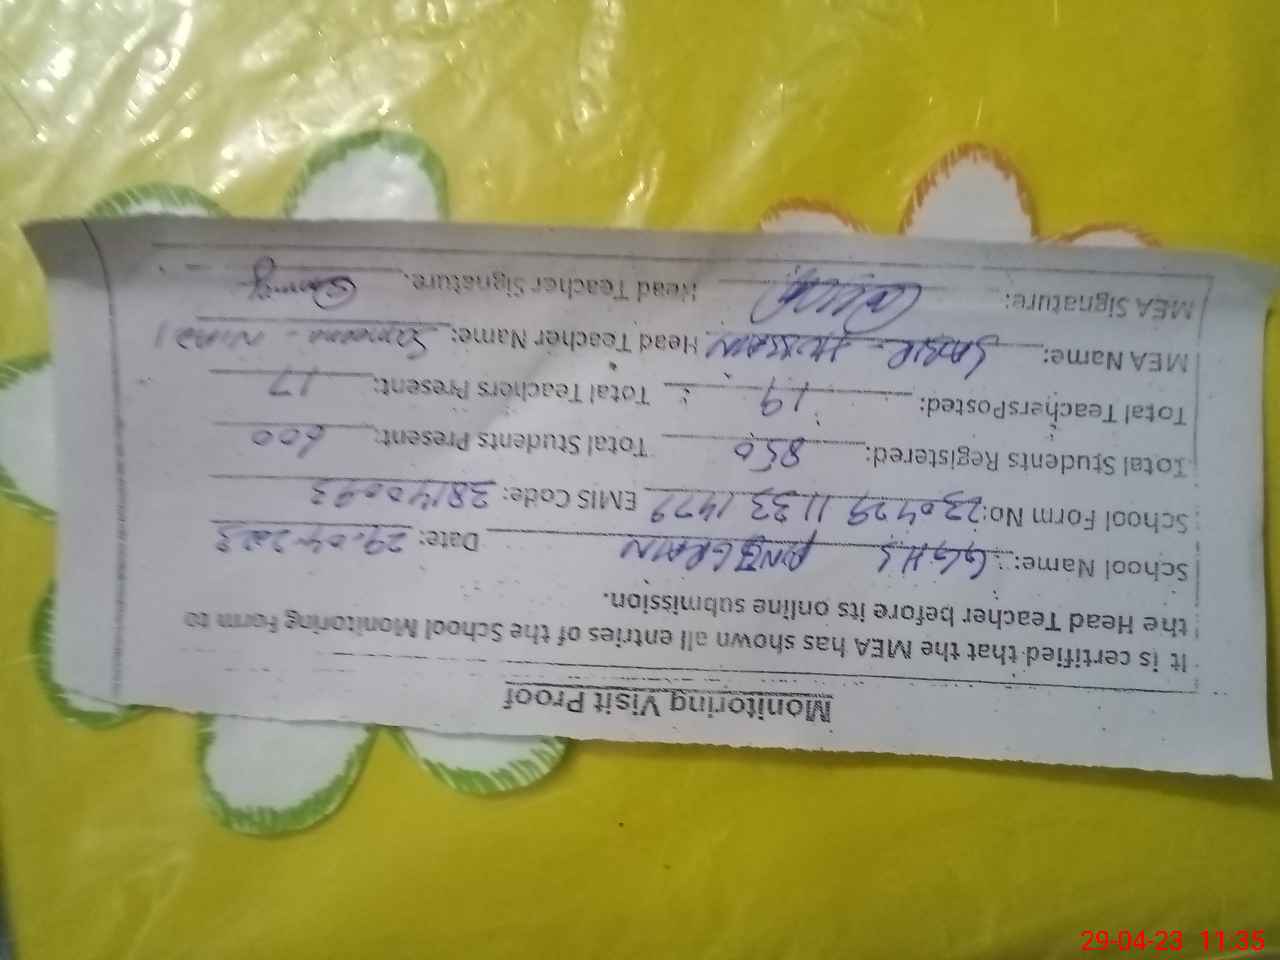 Monitoring Visit Proof
It is certified that the MEA has shown all entries of the School Monitoring Form to
the Head Teacher before its online submission.
School Name: GGHS Date: 29.04.2023
School Form No: 230429 1133 1479 EMIS Code: 38140093
Total Students Registered: 850 Total Students Present: 600
Total TeachersPosted: 19 Total Teachers Present: 17
MEA Name: SABIR HUSSAIN Head Teacher Name:
MEA Signature: Head Teacher Signature.
29-04-23 11:35